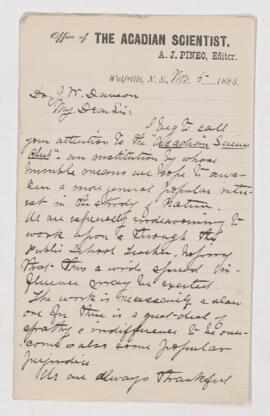 Office of THE ACADIAN SCIENTIST.
A. J. PINEO, Editor.
Wolfville, N. S., Nov 5 1883.
Dr. J. W. Dawson
My Dear Sir:
I beg to call
your attention to the "Acadian Science
Club" - an institution by whose
humble means we hope to awa-
ken a more general popular inter-
est in the study of Nature.
We are especially endeavoring to
work upon & through the
Public School Teacher, hoping
that thus a wide spread in-
fluence may be exerted.
The work is necessarily a slow
one for there is a great deal of
apathy & indifference to be over-
come & also some popular
prejudice
We are always thankful